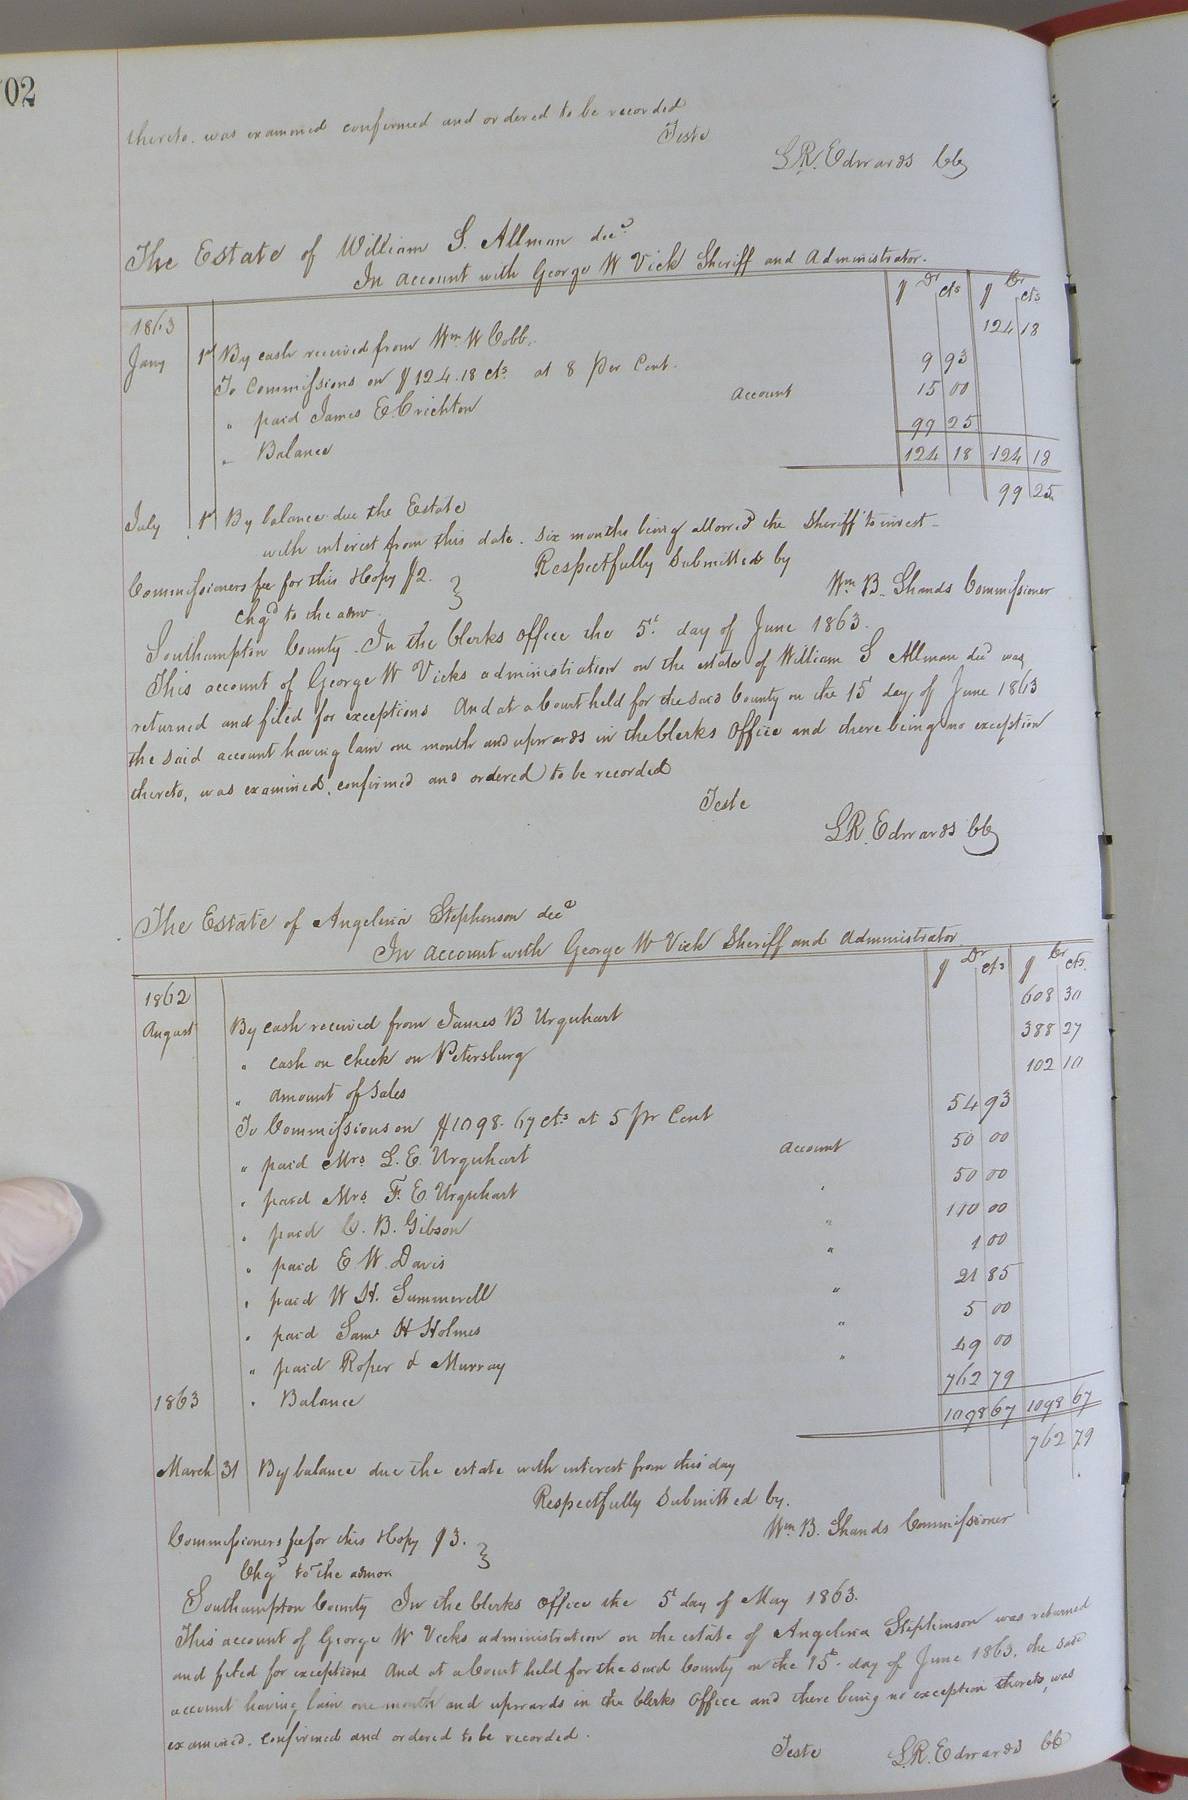 02
thereto. was examined confirmed and ordered to be recorded
Teste
L.R. Edwards CC
The Estate of William S. Allman decd
In account with George W Vick Sheriff and Administrator.
Dr Cr
$ cts $ cts
1863
Jany 1st By cash received from Wm W Cobb. 124 18
To Commissions on $124.18 cts at 8 per Cent. 9 93
" paid James E. Crichton Account 15 00
" Balance 99 25
124 18 124 18
July 1st By balance due the Estate 99 25
with interest from this date. Six months being allowed the Sheriff to invest.
Commissioners fee for this & Copy $2. } Respectfully Submitted by
Chgd to the admr Wm B. Shands Commissioner
Southampton County. In the Clerks office the 5th day of June 1863.
This account of George W Vicks administration on the estate of William S Allman decd was
returned and filed for exceptions And at a Court held for the said County on the 15 day of June 1863
the said account having lain one month and upwards in the Clerks Office and there being no exception
thereto, was examined, confirmed and ordered to be recorded
Teste
L.R. Edwards CC
The Estate of Angelina Stephenson decd
In account with George W Vick Sheriff and Administrator
Dr Cr
$ cts $ cts.
1862
August By cash received from James B Urquhart 608 30
" cash on check on Petersburg 388 27
" amount of sales 102 10
To Commissions on $1098.67 cts at 5 pr Cent 54 93
" paid Mrs L. E. Urquhart Account 50 00
" paid Mrs F. E Urquhart " 50 00
" paid C. B. Gibson " 110 00
" paid E. W. Davis " 1 00
" paid W H. Summerell " 21 85
" paid Saml H Holmes " 5 00
" paid Roper & Murray " 49 00
1863 " Balance 762 79
1098 67 1098 67
March 31 By balance due the estate with interest from this day 762 79
Respectfully Submitted by.
Commissioners fee for this & Copy $3. } Wm B. Shands Commissioner
Chgd to the admor
Southampton County In the Clerks office the 5th day of May 1863.
This account of George W Vicks administration on the estate of Angelina Stephenson was returned
and filed for exceptions And at a Court held for the said County on the 15th day of June 1863. the said
account having lain one month and upwards in the Clerks office and there being no exception thereto, was
examined. confirmed and ordered to be recorded.
Teste L.R. Edwards CC